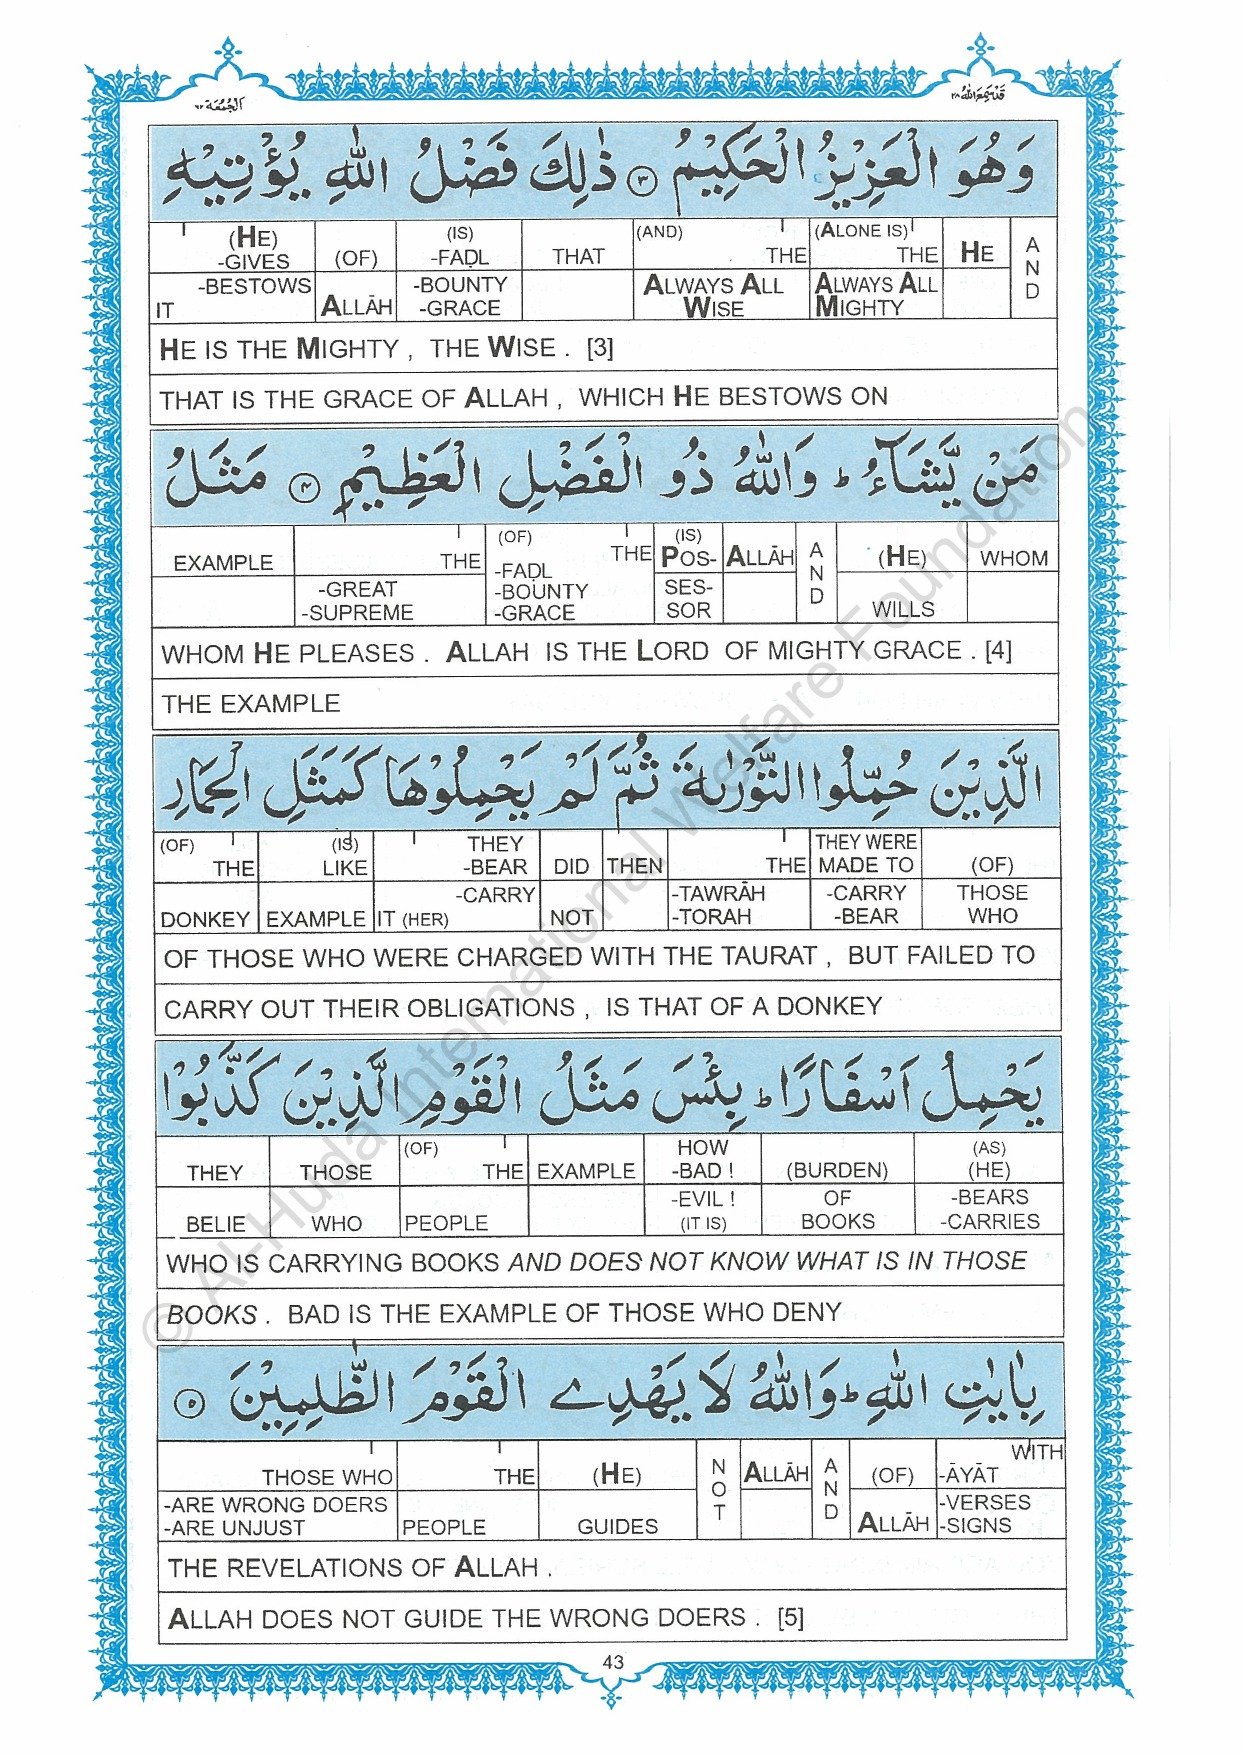 اَلْجُمُعَة ٦٢
قَدْ سَمِعَ اللّٰهُ ٢٨
وَهُوَ الْعَزِيْزُ الْحَكِيْمُ ٣ ذٰلِكَ فَضْلُ اللّٰهِ يُؤْتِيْهِ
(HE) (IS) (AND) (ALONE IS) HE A
-GIVES (OF) -FAḌL THAT THE THE N
-BESTOWS -BOUNTY ALWAYS ALL ALWAYS ALL D
IT ALLĀH -GRACE WISE MIGHTY
HE IS THE MIGHTY , THE WISE . [3]
THAT IS THE GRACE OF ALLAH , WHICH HE BESTOWS ON
مَنْ يَّشَآءُ ؕ وَاللّٰهُ ذُو الْفَضْلِ الْعَظِيْمِ ٤ مَثَلُ
(OF) (IS)
EXAMPLE THE THE POS- ALLĀH A (HE) WHOM
-FAḌL N
-GREAT -BOUNTY SES- D
-SUPREME -GRACE SOR WILLS
WHOM HE PLEASES . ALLAH IS THE LORD OF MIGHTY GRACE . [4]
THE EXAMPLE
الَّذِيْنَ حُمِّلُوا التَّوْرٰىةَ ثُمَّ لَمْ يَحْمِلُوْهَا كَمَثَلِ الْحِمَارِ
(OF) (IS) THEY THEY WERE
THE LIKE -BEAR DID THEN THE MADE TO (OF)
-CARRY -TAWRĀH -CARRY THOSE
DONKEY EXAMPLE IT (HER) NOT -TORAH -BEAR WHO
OF THOSE WHO WERE CHARGED WITH THE TAURAT , BUT FAILED TO
CARRY OUT THEIR OBLIGATIONS , IS THAT OF A DONKEY
يَحْمِلُ اَسْفَارًا ؕ بِئْسَ مَثَلُ الْقَوْمِ الَّذِيْنَ كَذَّبُوْا
(OF) HOW (AS)
THEY THOSE THE EXAMPLE -BAD ! (BURDEN) (HE)
-EVIL ! OF -BEARS
BELIE WHO PEOPLE (IT IS) BOOKS -CARRIES
WHO IS CARRYING BOOKS AND DOES NOT KNOW WHAT IS IN THOSE
BOOKS . BAD IS THE EXAMPLE OF THOSE WHO DENY
بِاٰيٰتِ اللّٰهِ ؕ وَاللّٰهُ لَا يَهْدِے الْقَوْمَ الظّٰلِمِيْنَ ٥
WITH
THOSE WHO THE (HE) N ALLĀH A (OF) -ĀYĀT
-ARE WRONG DOERS O N -VERSES
-ARE UNJUST PEOPLE GUIDES T D ALLĀH -SIGNS
THE REVELATIONS OF ALLAH .
ALLAH DOES NOT GUIDE THE WRONG DOERS . [5]
43
© Al-Huda International Welfare Foundation